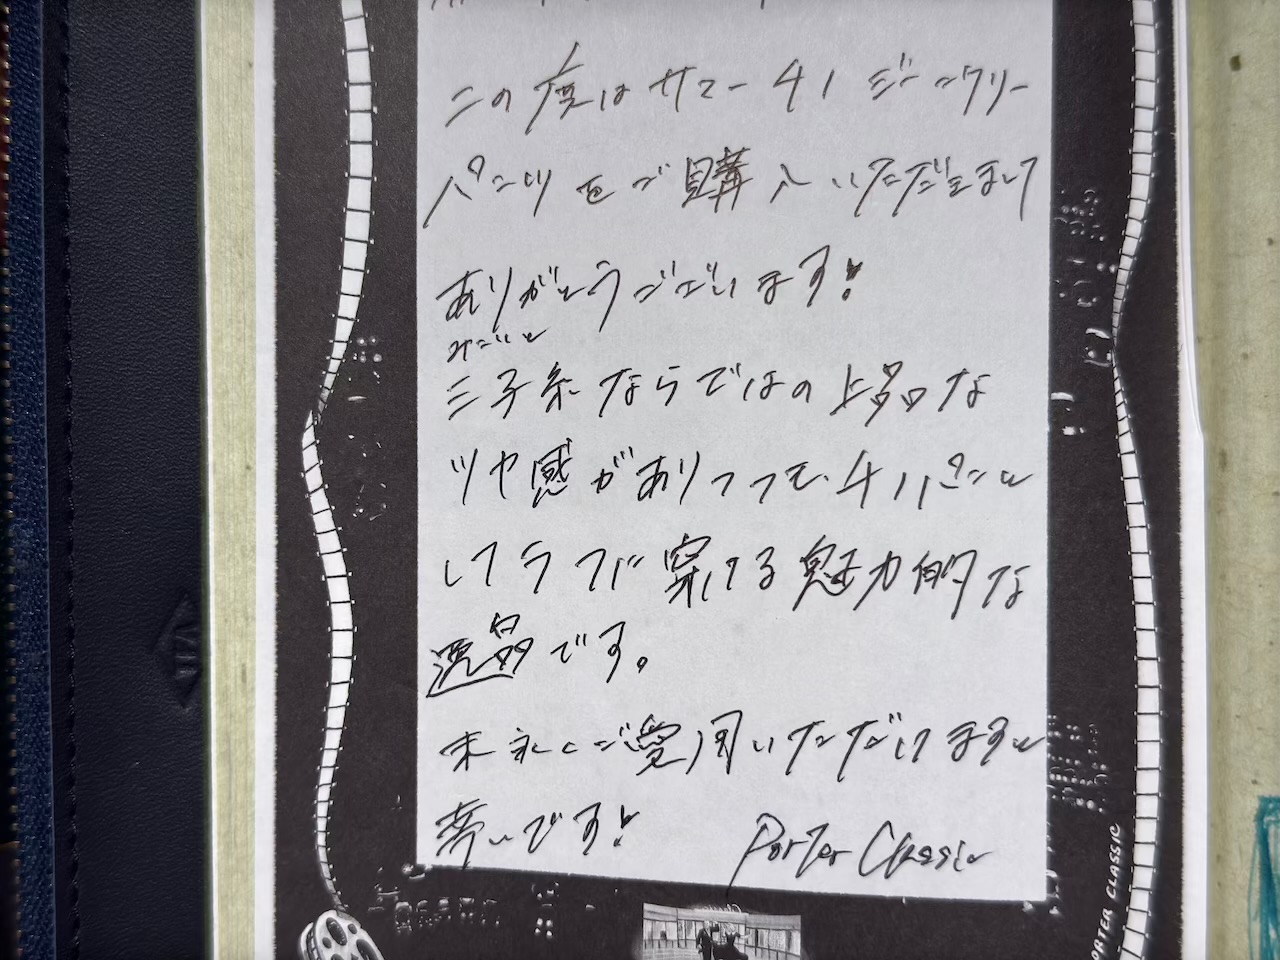 この度はサマーチノ ジーンクリー
パンツをご購入いただきまして
ありがとうございます!
みこいと
三子糸ならではの上品な
ツヤ感がありつつも、チノパンと
してラフに穿ける魅力的な
逸品です。
末永くご愛用いただけますと
幸いです!
Porter Classic
PORTER CLASSIC